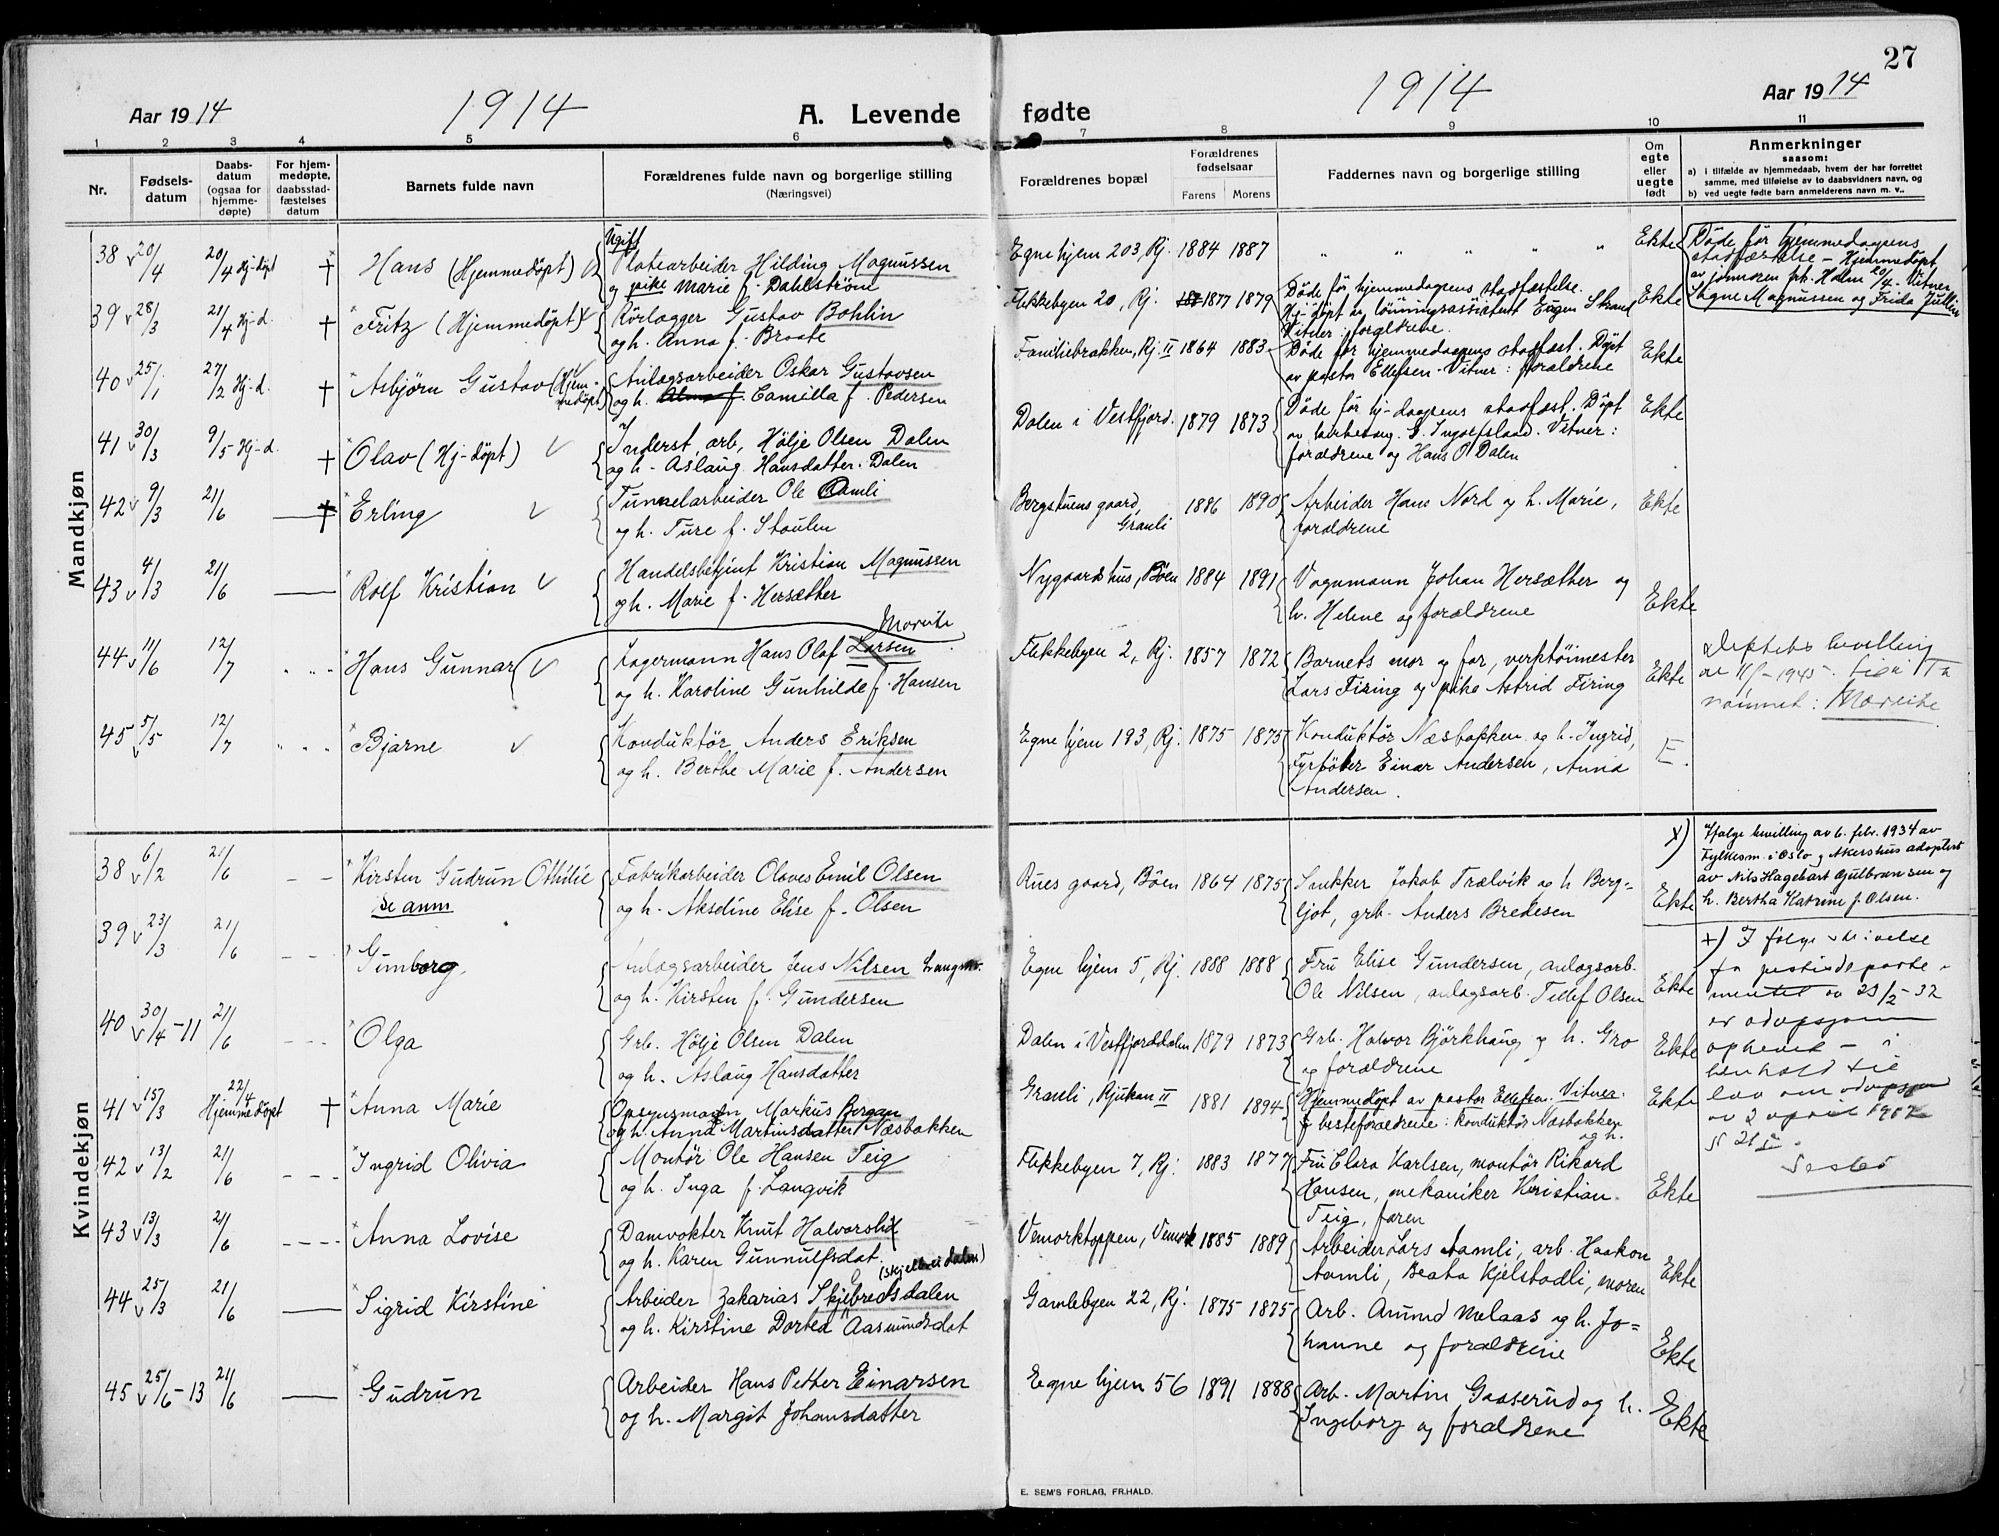 27
Aar 1914
1914
A. Levende
fødte
1914
Aar 1914
1 2 3 4 5 6 7 8 9 10 11
Nr.
Fødsels-
datum
Daabs-
datum
(ogsaa for
hjemme-
døpte)
For hjem-
medøpte,
daabsstad-
fæstelses
datum
Barnets fulde navn
Forældrenes fulde navn og borgerlige stilling
(Næringsvei)
Forældrenes bopæl
Forældrenes
fødselsaar
Farens Morens
Faddernes navn og borgerlige stilling
Om
egte
eller
uegte
født
Anmerkninger
saasom:
a) i tilfælde av hjemmedaab, hvem der har forrettet
samme, med tilføielse av to daabsvidners navn, og
b) ved uegte fødte barn anmelderens navn m. v..
Mandkjøn
38 20/4 20/4 Hj-døpt † Hans (Hjemmedöpt)
Ugift
Platearbeider Hilding Magnussen
og pike Marie f. Dahlström
Egne hjem 203, Rj. 1884 1887 " " " " Ekte
Døde før hjemmedaapens
stadfæstelse - Hjemmedöpt
av jormoren frk. Holm 20/4. Vitner
Signe Magnussen og Frida
39 28/3 21/4 Hj-d. † Fritz (Hjemmedöpt)
Rörlægger Gustav Bohlin
og h. Anna f. Braate
Flekkebyen 20, Rj. 1877 1879
Døde før hjemmedaapens stadfæstelse.
Hj-döpt av lönningsassistent Eugen Strand
Vitner: forældrene.
Ekte
40 25/1 27/2 Hj-d. † Asbjörn Gustav (Hjem-
medöpt)
Anlægsarbeider Oskar Gustavsen
og h. Camilla f. Pedersen
Familiebrakken, Rj. II 1864 1883
Døde før hjemmedaapens stadfæst. Döpt
av pastor Ellefsen. Vitner: forældrene
Ekte
41 30/3 9/5 Hj-d. † Olav (Hj-döpt)
Inderst, arb, Hölje Olsen Dalen
og h. Aslaug Hansdatter. Dalen
Dalen i Vestfjord. 1879 1873
Døde før hj-daapens stadfæst. Döpt
av kirkesang. S. Ingolfsland. Vitner:
forældrene og Hans O. Dalen
Ekte
42 9/3 21/6 — † Erling
Tunnelarbeider Ole Aamli
og h. Ture f. Staulen
Bergstuens gaard,
Graali
1886 1890
Arbeider Hans Nord og h. Marie,
forældrene
Ekte
43 4/3 21/6 — Rolf Kristian
Handelsbetjent Kristian Magnussen
og h. Marie f. Hersætther
Nygaardshus, Böen 1884 1891
Vognmann Johan Hersætther og
h. Helene og forældrene
Ekte
44 11/6 12/7 " " " Hans Gunnar
Moreite
Lagermann Hans Olaf Larsen
og h. Karoline Gunhilde f. Hansen
Flekkebyen 2, Rj. 1857 1872
Barnets mor og far, verktöimester
Lars Firing og pike Astrid Firing
Ekte
bevilling
1945
navnet: Moreite
45 5/5 12/7 " " " Bjarne
Konduktör Anders Eriksen
og h. Berthe Marie f. Andersen
Egne hjem 193, Rj. 1875 1875
Konduktör Næsbakken og h. Ingrid,
Fyrböter Einar Andersen, Anna
Andersen.
E.
Kvindekjøn
38 6/2 21/6 — — Kirsten Gudrun Othilie
se anm
Fabrikarbeider Olaves Emil Olsen
og h. Akseline Elise f. Olsen
Rues gaard, Böen 1864 1875
Snekker Jakob Trælvik og h. Berg-
ljot, grb. Anders Bredesen
Ekte
x) Ifølge bevilling av 6. febr. 1934 av
Fylkesm. i Oslo og Akershus adoptert
av Nils Hagebart Gulbransen og
h. Bertha Katrine f. Olsen.
39 23/3 21/6 - - - Gunborg
Anlægsarbeider Jens Nilsen
og h. Kirsten f. Gundersen
Egne hjem 5, Rj. 1888 1888
Fru Elise Gundersen, anlægsarb.
Ole Nilsen, anlægsarb. Tellef Olsen
Ekte
+) I følge skrivelse
fra justisdeparte-
mentet av 23/2-32
er adopsjonen
ophevet - i
henhold til
lov om adopsjon
av 2 april 1917
§ 21
40 30/4-11 21/6 - - - Olga
Grb. Hölje Olsen Dalen
og h. Aslaug Hansdatter
Dalen i Vestfjorddalen 1879 1873
Grb. Halvor Björkhaug og h. Gro
og forældrene
Ekte
41 15/3 22/4 Hjemmedöpt † Anna Marie
Opsynsmann Markus Bergan
og h. Anna Martinsdatter Næsbakken
Graali, Rjukan II 1881 1894
Hjemmedöpt av pastor Ellefsen. Vitner:
besteforældrene: Konduktör Næsbakken
og h.
Ekte
42 13/2 21/6 - - - Ingrid Olivia
Montör Ole Hansen Teig
og h. Inga f. Langvik
Flekkebyen 7, Rj. 1883 1877
Fru Clara Karlsen, montör Rikard
Hansen, mekaniker Kristian
Teig, faren
Ekte
43 13/3 21/6 - - - - Anna Lovise
Damvokter Knut Halvorslid
og h. Karen Gunnulfsdat.
Vemorktoppen, Vemork 1885 1889
Arbeider Lars Aamli, arb. Haakon
Aamli, Beata Kjelstadli, moren
Ekte
44 25/3 21/6 — Sigrid Kirstine
Arbeider Zakarias Skjebredsdalen
og h. Kirstine Dortea Aasmundsdat
Gamlebyen 22, Rj. 1875 1875
Arb. Amund Melaas og h. Jo=
hanne og forældrene
Ekte
45 25/6-13 21/6 — Gudrun
Arbeider Hans Petter Einarsen
og h. Margit Johansdatter
Egne hjem 56 1891 1888
Arb. Martin Gaaserud og h.
Ingeborg og forældrene
Ekte
E. SEM'S FORLAG, FR.HALD.